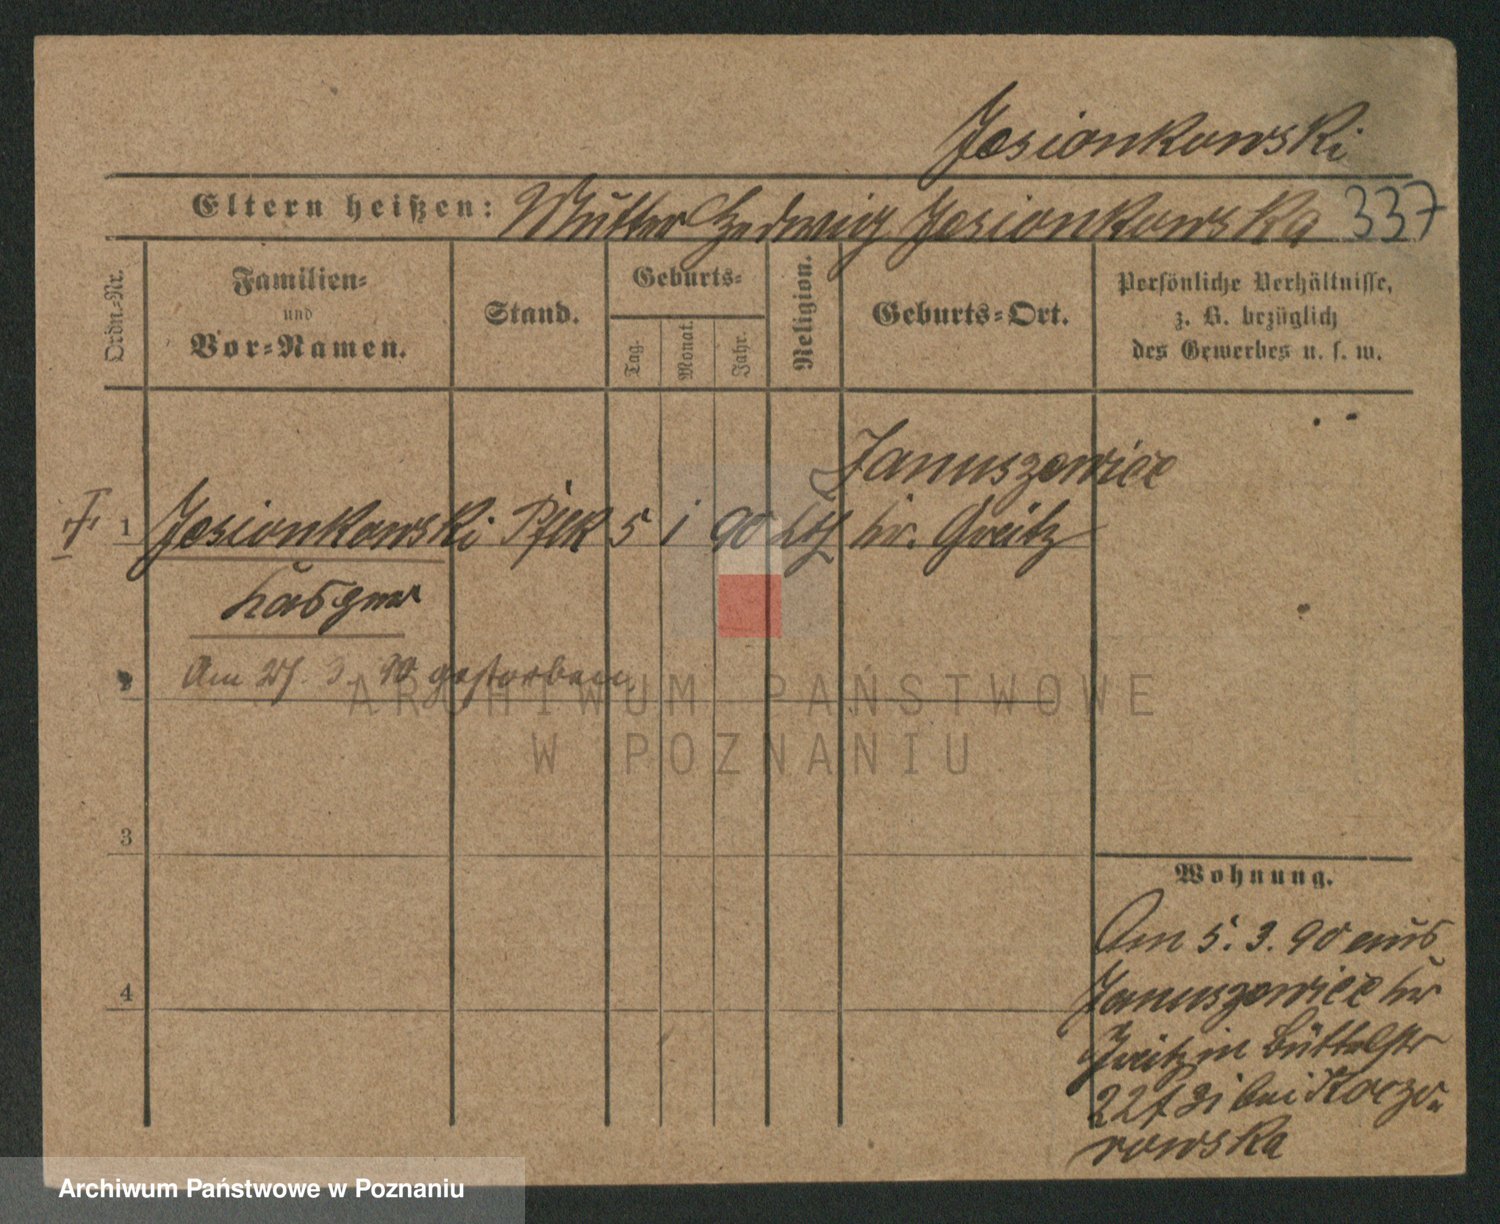 Josionkowski
Eltern heißen: Mutter Hedwig Josionkowska 337
Ordn.-Nr.
Familien-
und
Vor-Namen.
Stand.
Geburts-
Tag.
Monat.
Jahr.
Religion.
Geburts-Ort.
Persönliche Verhältnisse,
z. B. bezüglich
des Gewerbes u. s. w.
Januszewice
1 Josionkowski 5 1 90 kth kr. Grätz
Am 27. 3. 90 gestorben.
2
3
4
Wohnung.
Am 5. 3. 90 aus
Januszewice kr
Grätz in Büttelstr
22 bei Koczo-
rowska
ARCHIWUM PAŃSTWOWE
W POZNANIU
Archiwum Państwowe w Poznaniu